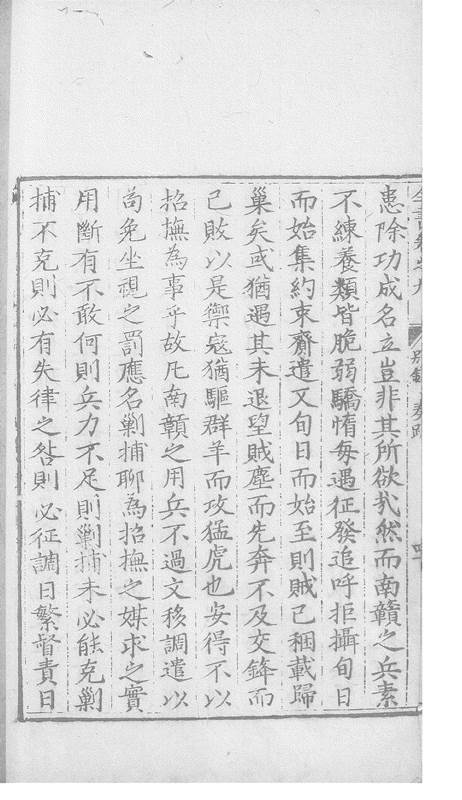 患除功成名立豈非其所欲哉然而南贛之兵素
不練養類皆脆弱驕惰每遇征發追呼拒攝旬日
而始集約束齎遣又旬日而始至則賊已稛載歸
巢矣或猶遇其未退望賊塵而先奔不及交鋒而
已敗以是禦寇猶驅群羊而攻猛虎也安得不以
招撫為事乎故凡南贛之用兵不過文移調遣以
苟免坐視之罰應名剿捕聊為招撫之媒求之實
用斷有不敢何則兵力不足則剿捕未必能克剿
捕不克則必有失律之咎則必征調日繁督責日